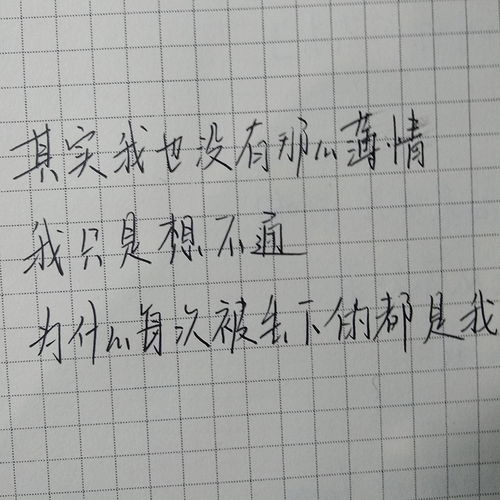 其实我也没有那么薄情
我只是想不通
为什么每次被丢下的都是我